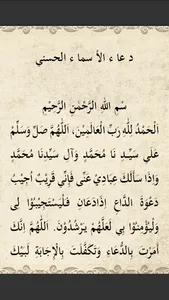 د عا ء الأ سما ء الحسنى
سْمِ اللهِ الرَّحْمٰنِ الرَّحِيْمِ
اَلْحَمْدُ لِلّٰهِ رَبِّ الْعَالَمِيْنَ، اَللّٰهُمَّ صَلِّ وَسَلِّمْ
عَلَي سَيِّدِ نَا مُحَمَّدٍ وَآلِ سَيِّدِنَا مُحَمَّدٍ
وَاِذَا سَأَلَكَ عِبَادِيْ عَنِّى فَاِنِّي قَرِيْبٌ اُجِيْبُ
دَعْوَةَ الدَّاعِ اِذَادَعَانِ فَلْيَسْتَجِيْبُوْا لِى
وَلْيُؤْمِنُوْا بِي لَعَلَّهُمْ يَرْشُدُوْنَ. اَللّٰهُمَّ اِنَّكَ
أَمَرْتَ بِالدُّعَاءِ وَتَكَفَّلْتَ بِالْاِجَابَةِ لَبَّيْكَ